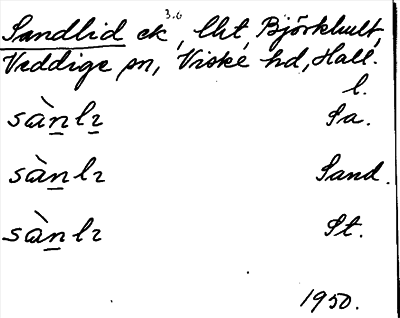 3.6
Sandlid ek, lht Björkhult,
Veddige sn, Viske hd, Hall.
l.
sàn̲lı̲ Sa.
sàn̲lı Sand.
sàn̲lı St.
1950.